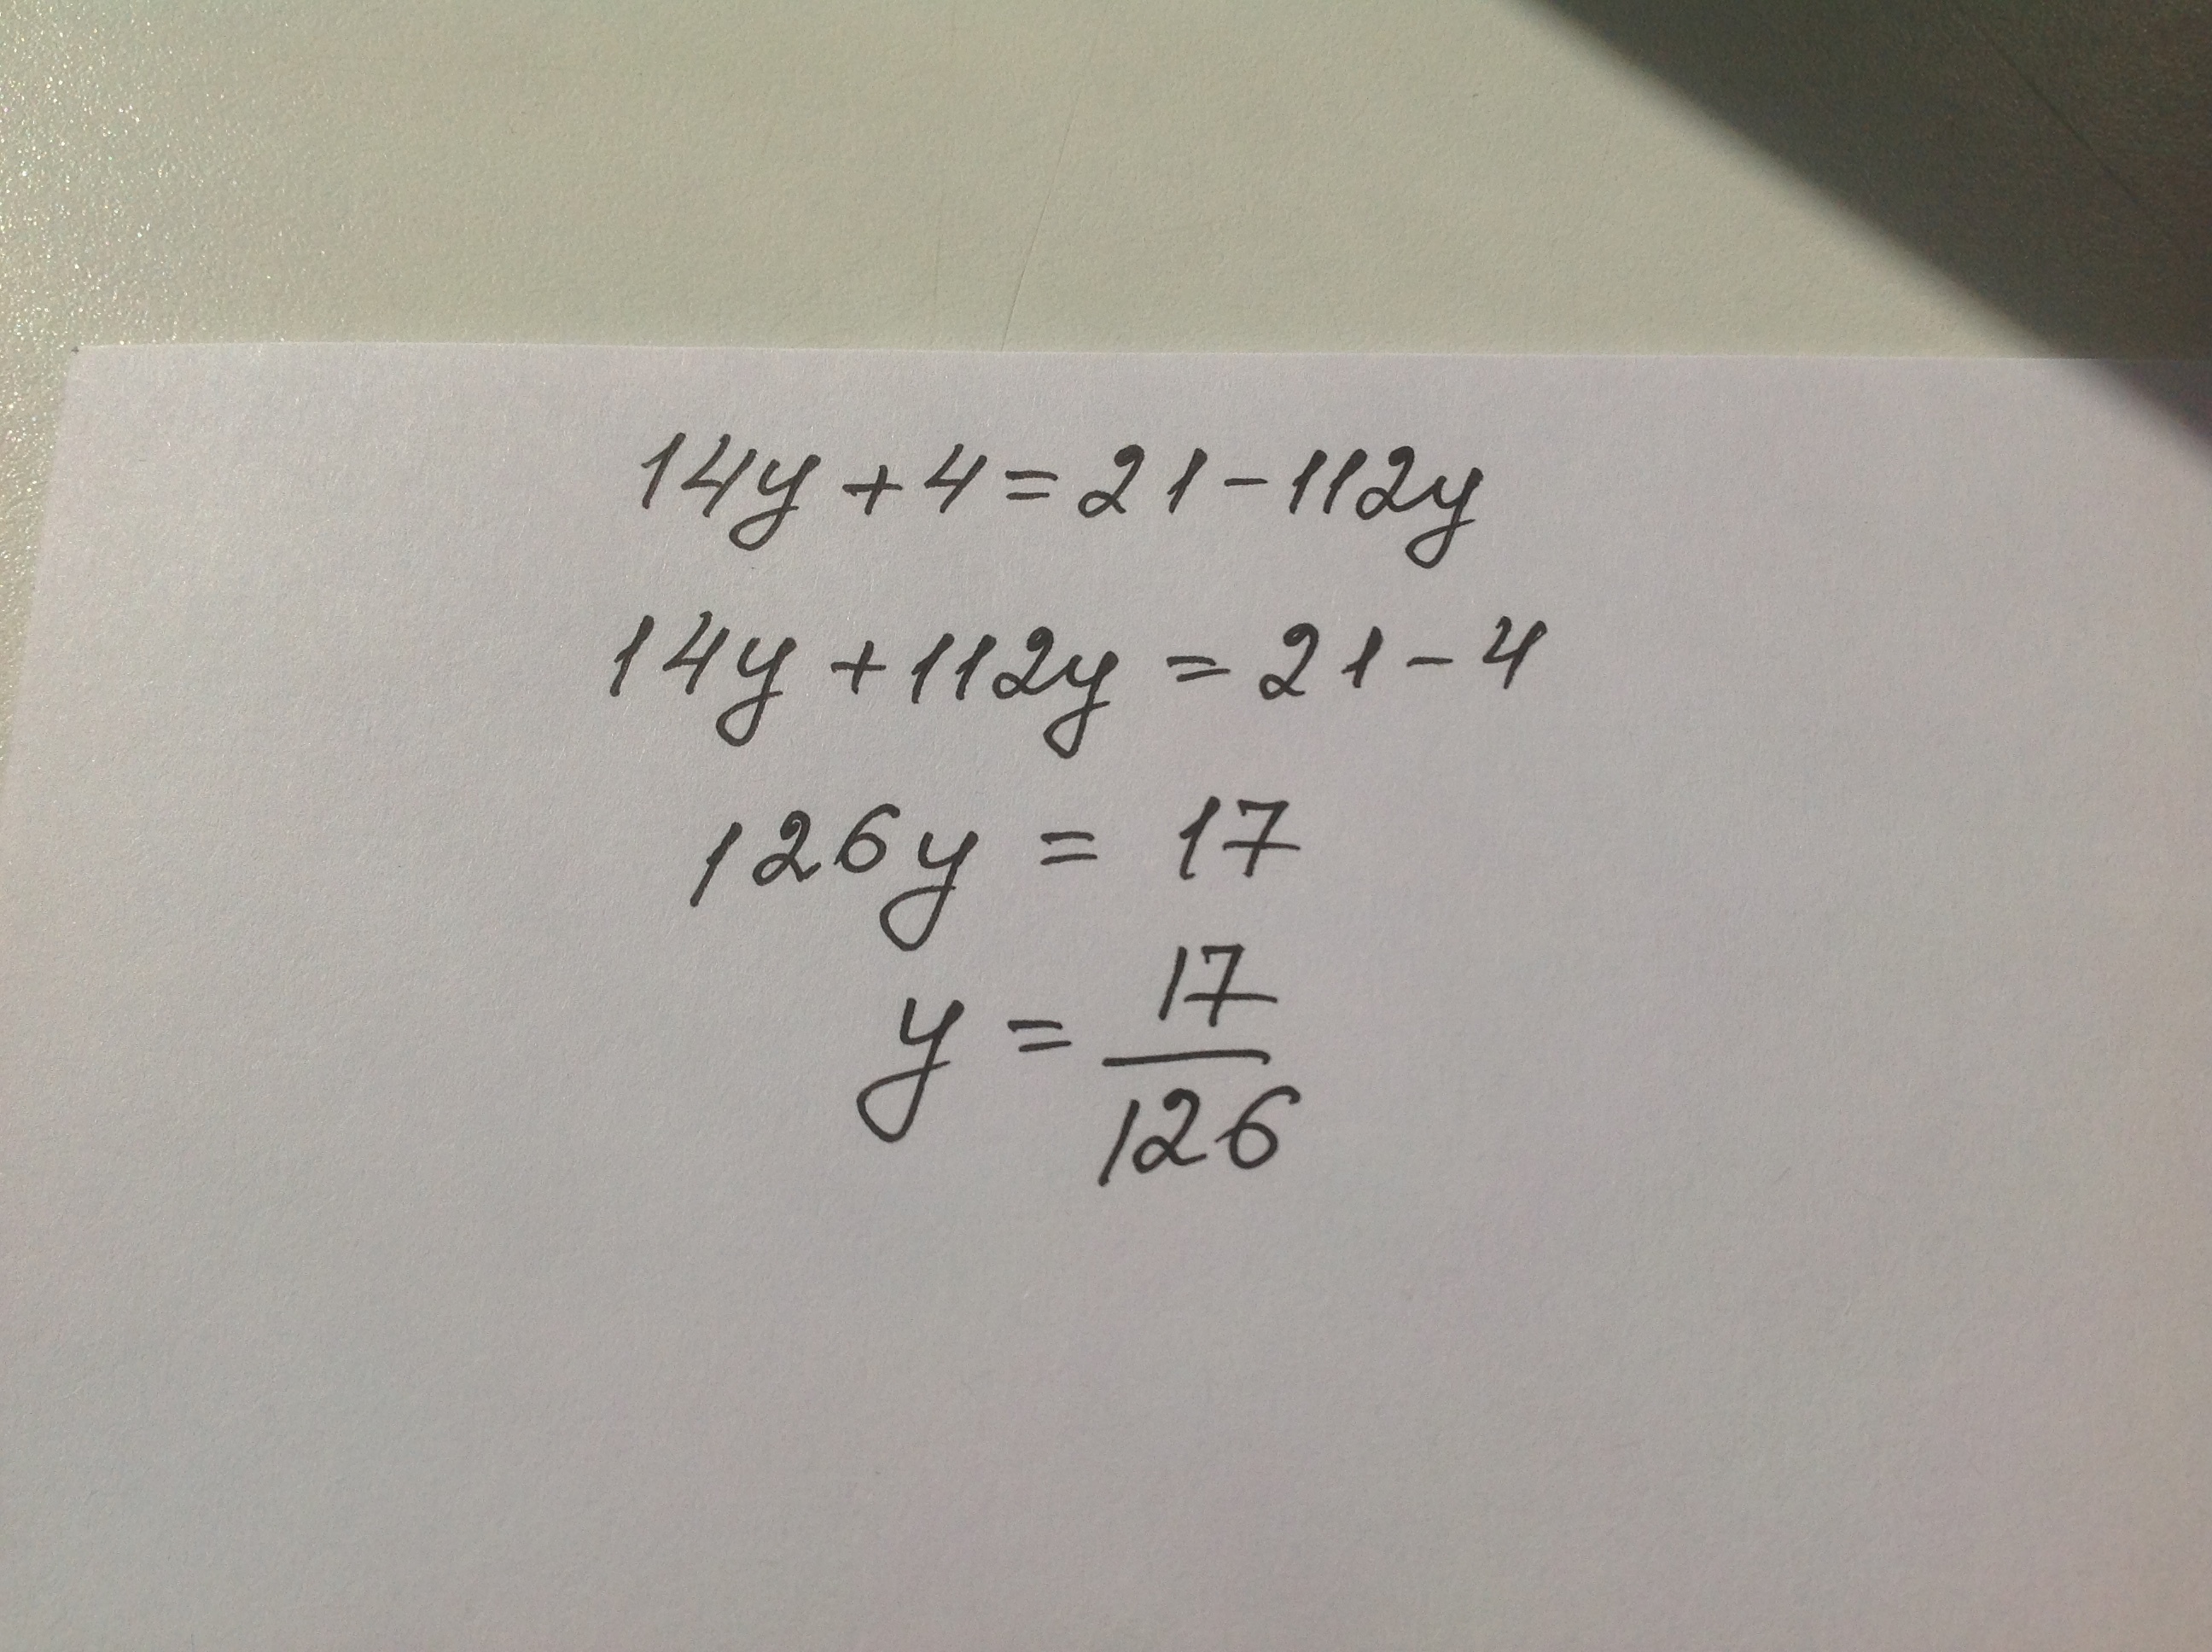 14y + 4 = 21 - 112y
14y + 112y = 21 - 4
126y = 17
y = 17/126